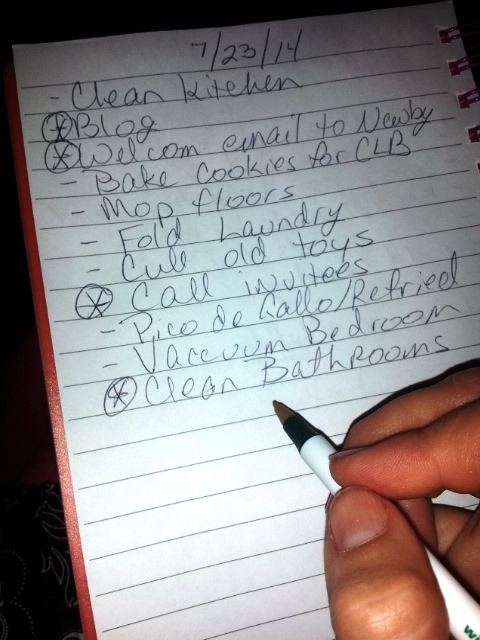 7/23/14
- Clean kitchen
* Blog
* Welcom email to Newby
- Bake Cookies for CLB
- Mop floors
- Fold Laundry
- Cull old toys
* Call invitees
- Pico de Gallo/Refried
- Vaccuum Bedroom
* Clean Bathrooms